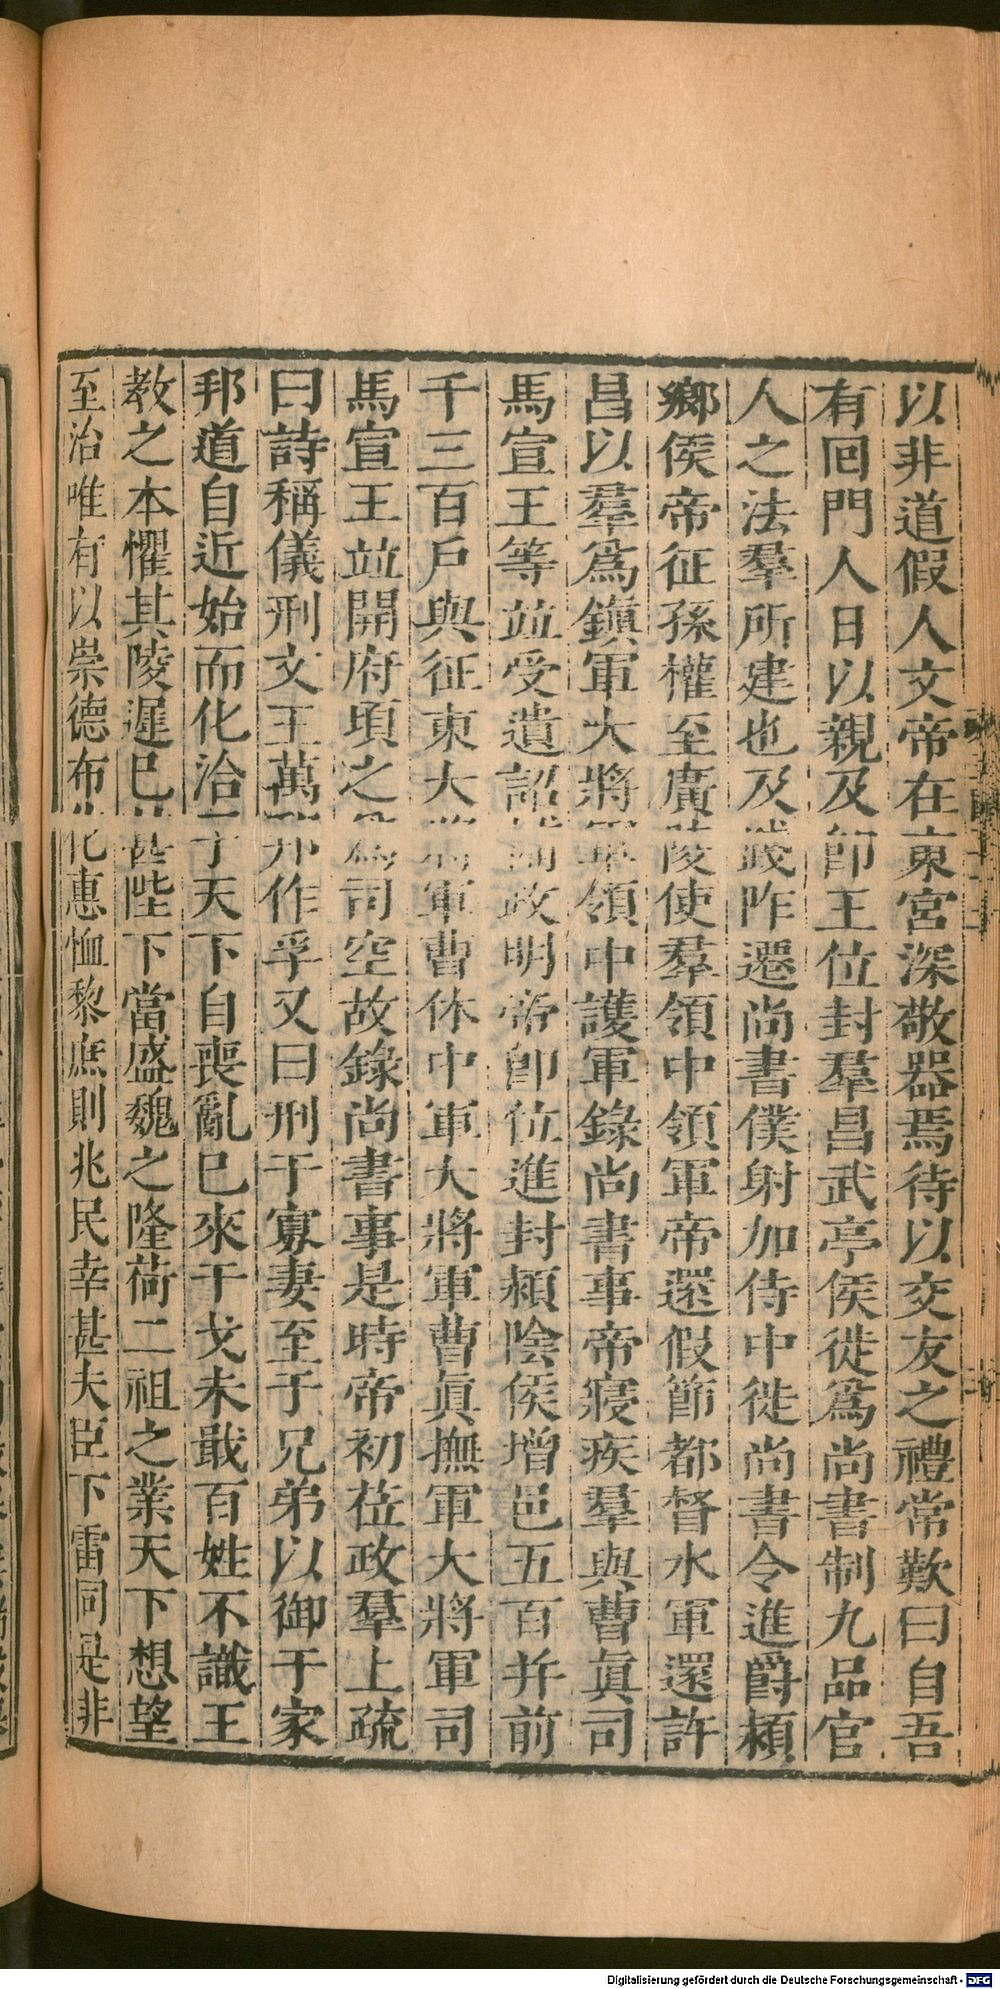 以非道假人文帝在東宮深敬器焉待以交友之禮常歎曰自吾
有回門人日以親及卽王位封羣昌武亭侯徙爲尚書制九品官
人之法羣所建也及踐阼遷尚書僕射加侍中徙尚書令進爵潁
鄉侯帝征孫權至廣陵使羣領中領軍帝還假節都督水軍還許
昌以羣爲鎭軍大將軍領中護軍錄尚書事帝寢疾羣與曹眞司
馬宣王等並受遺詔輔政明帝卽位進封潁陰侯增邑五百并前
千三百戶與征東大將軍曹休中軍大將軍曹眞撫軍大將軍司
馬宣王並開府頃之爲司空故錄尚書事是時帝初莅政羣上疏
曰詩稱儀刑文王萬邦作孚又曰刑于寡妻至于兄弟以御于家
邦道自近始而化洽于天下自喪亂已來干戈未戢百姓不識王
教之本懼其陵遲已甚陛下當盛魏之隆荷二祖之業天下想望
至治唯有以崇德布化惠恤黎庶則兆民幸甚夫臣下雷同是非
Digitalisierung gefördert durch die Deutsche Forschungsgemeinschaft - DFG